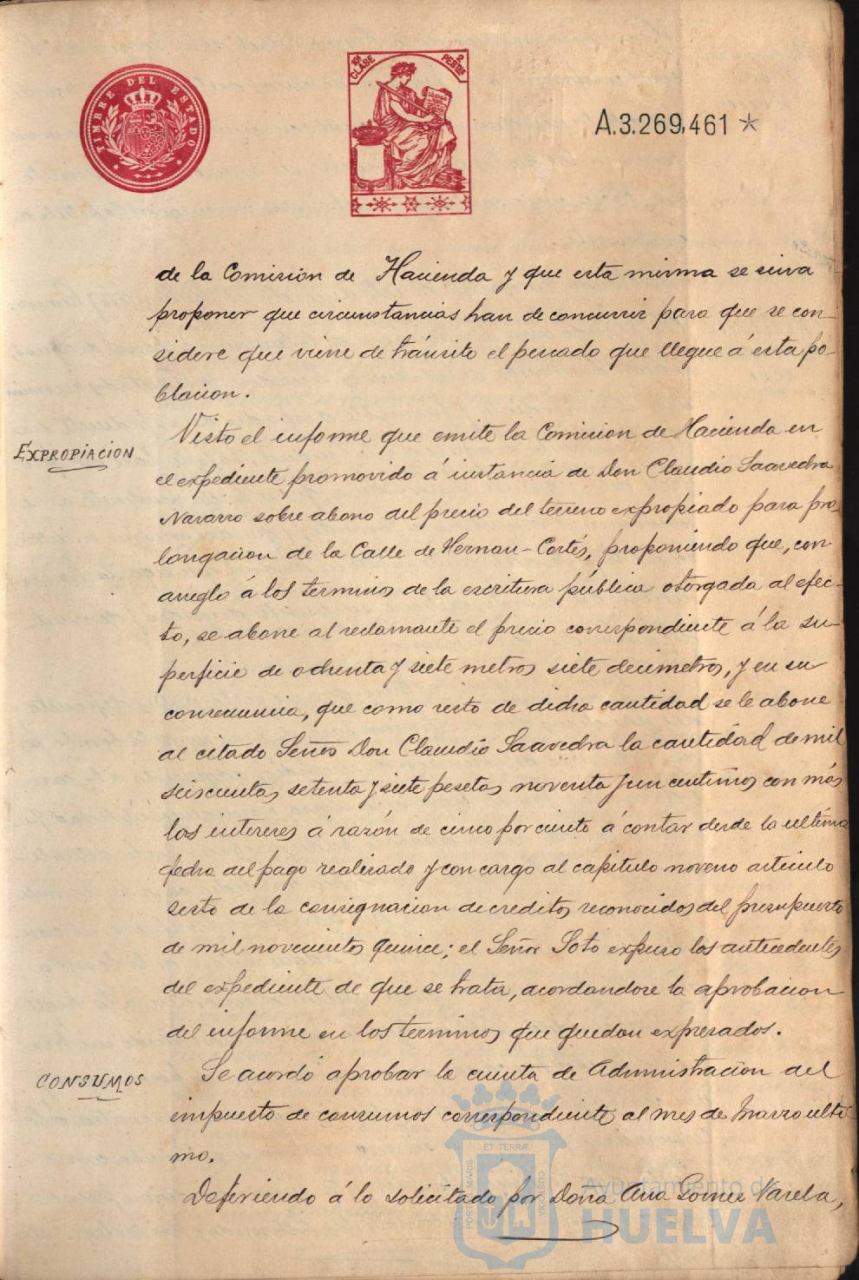 TIMBRE DEL ESTADO
10ª CLASE
2 PESETAS
A.3.269,461 *
de la Comision de Hacienda y que esta misma se sirva
proponer que circunstancias han de concurrir para que se con-
sidere que viene de tránsito el pescado que llegue á esta po-
blacion.
EXPROPIACION
Visto el informe que emite la Comision de Hacienda en
el expediente promovido á instancia de Don Claudio Saavedra
Navarro sobre abono del precio del terreno expropiado para pro-
longacion de la Calle de Hernan-Cortés, proponiendo que, con
arreglo á los terminos de la escritura pública otorgada al efec-
to, se abone al reclamante el precio correspondiente á la su-
perficie de ochenta y siete metros siete decimetros, y en su
consecuencia, que como resto de dicha cantidad se le abone
al citado Señor Don Claudio Saavedra la cantidad de mil
seiscientas setenta y siete pesetas noventa y un centimos con más
los intereses á razón de cinco por ciento á contar desde la ultima
fecha del pago realizado y con cargo al capitulo noveno articulo
sesto de la consignacion de creditos reconocidos del presupuesto
de mil novecientos quince; el Señor Soto expuso los antecedentes
del expediente de que se trata, acordandose la aprobacion
del informe en los terminos que quedan expresados.
CONSUMOS
Se acordó aprobar la cuenta de Administracion del
impuesto de consumos correspondiente al mes de Marzo ulti-
mo.
Defiriendo á lo solicitado por Doña Ana Gomez Varela,
PORTUS MARIS
ET TERRÆ
CUSTODIA
Ayuntamiento de
HUELVA